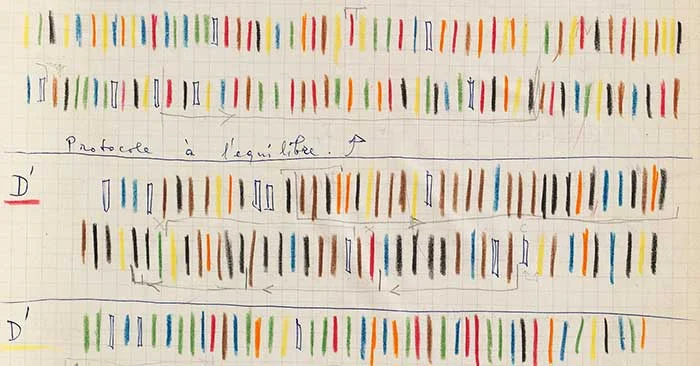 Protocole à l'equilibre.
D'
D'